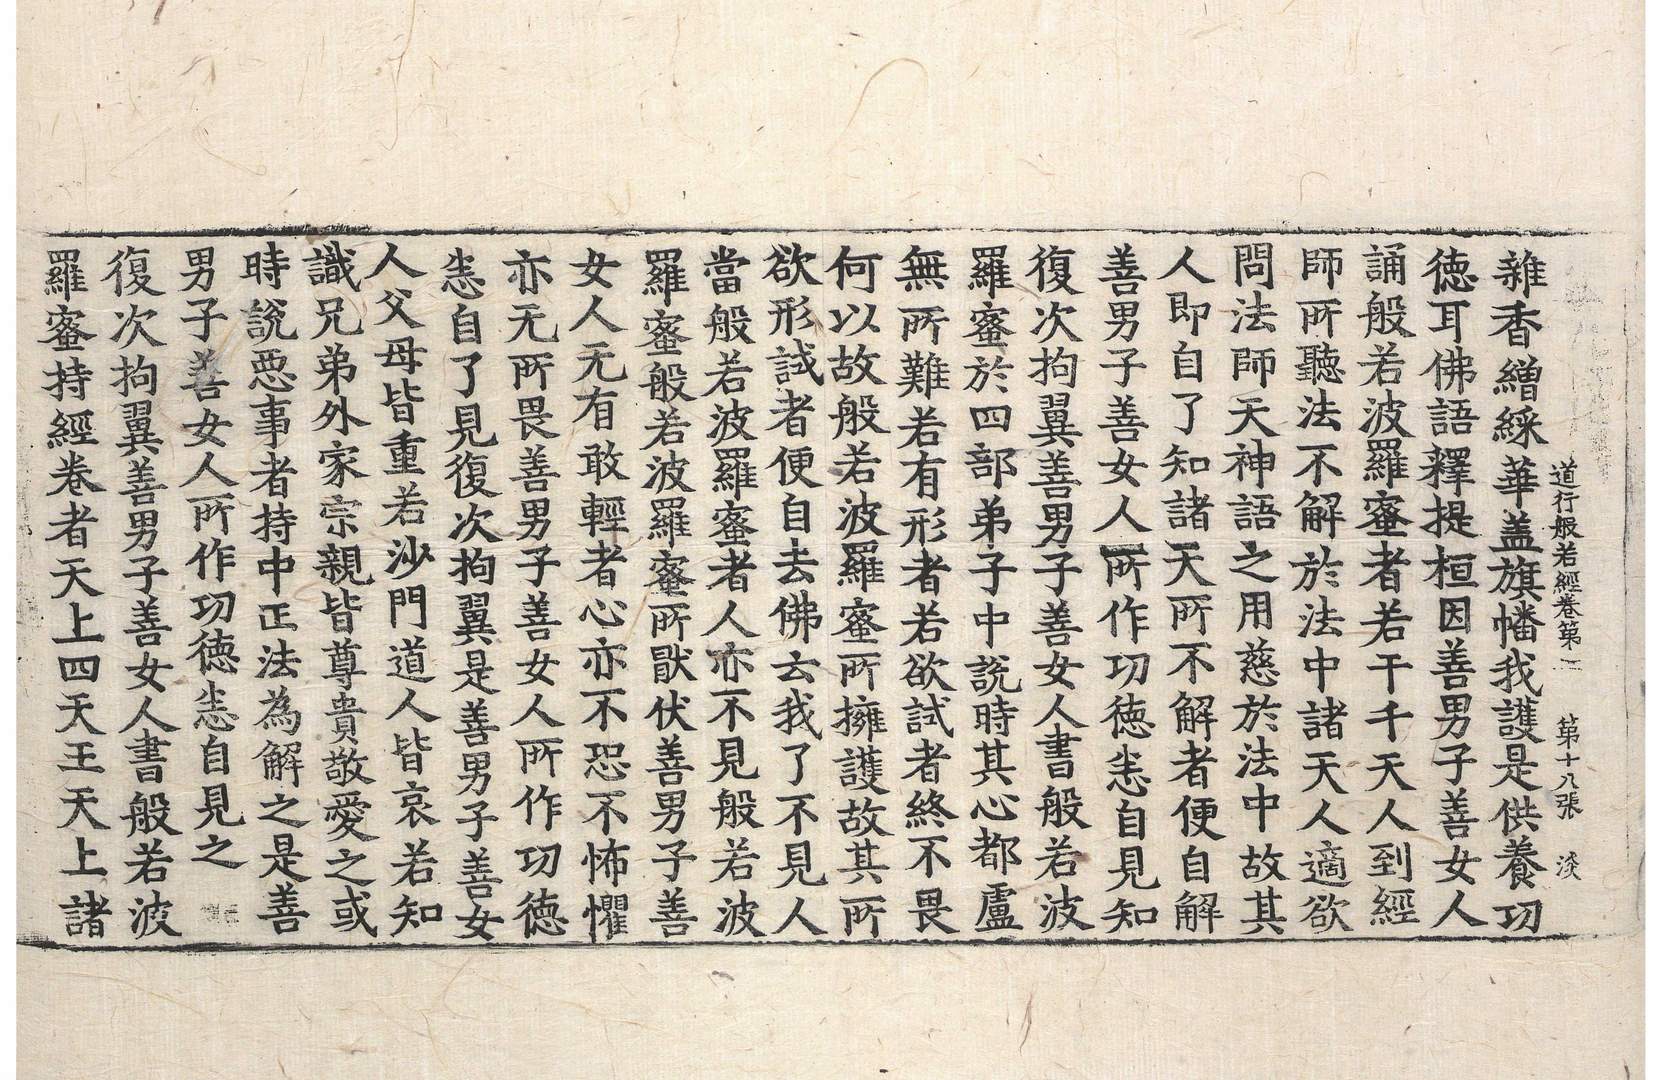 道行般若經卷第二 第十八張 淡
雜香繒綵華盖旗幡我護是供養功
德耳佛語釋提桓因善男子善女人
誦般若波羅蜜者若干千天人到經
師所聽法不解於法中諸天人適欲
問法師天神語之用慈於法中故其
人即自了知諸天所不解者便自解
善男子善女人所作功德恙自見知
復次拘翼善男子善女人書般若波
羅蜜於四部弟子中説時其心都盧
無所難若有形者若欲試者終不畏
何以故般若波羅蜜所擁護故其所
欲形試者便自去佛言我了不見人
當般若波羅蜜者人亦不見般若波
羅蜜般若波羅蜜所猒伏善男子善
女人无有敢輕者心亦不恐不怖懼
亦无所畏善男子善女人所作功德
恙自了見復次拘翼是善男子善女
人父母皆重若沙門道人皆哀若知
識兄弟外家宗親皆尊貴敬愛之或
時説惡事者持中正法為解之是善
男子善女人所作功德恙自見之
復次拘翼善男子善女人書般若波
羅蜜持經卷者天上四天王天上諸